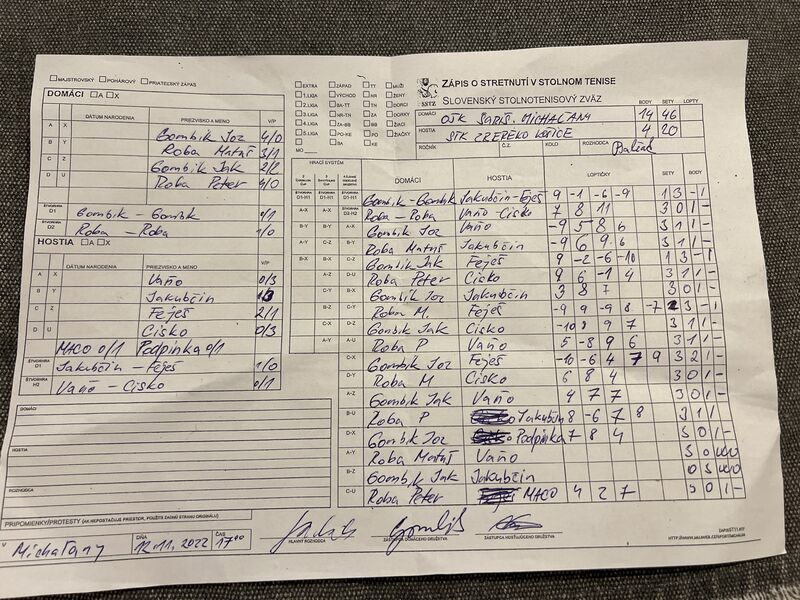 MAJSTROVSKÝ POHÁROVÝ PRIATEĽSKÝ ZÁPAS
DOMÁCI A X
DÁTUM NARODENIA PRIEZVISKO A MENO V/P
A X Gombik Joz 4/0
B Y Roba Matúš 3/1
C Z Gombik Jak 2/2
D U Roba Peter 4/0
ŠTVORHRA D1 Gombik - Gombik 0/1
ŠTVORHRA D2 Roba - Roba 1/0
HOSTIA A X
DÁTUM NARODENIA PRIEZVISKO A MENO V/P
A X Vaňo 0/3
B Y Jakubčin
C Z Fejěš 2/1
D U Cisko 0/3
MACO 0/1 Podpinka 0/1
ŠTVORHRA Jakubčin - Fejěš 1/0
ŠTVORHRA H2 Vaňo - Cisko 0/1
DOMÁCI
HOSTIA
ROZHODCA
PRIPOMIENKY/PROTESTY (AK NEPOSTAČUJE PRIESTOR, POUŽITE ZADNÚ STRANU ORIGINÁLU)
Michaľany DŇA 12.11.2022 ČAS 17⁰⁰
EXTRA ZÁPAD TT MUŽI
1.LIGA VÝCHOD NR ŽENY
2.LIGA BA-TT TN DORCI
3.LIGA NR-TN ZA DORKY
4.LIGA ZA-BB BB ŽIACI
5.LIGA PO-KE PO ŽIAČKY
BA KE
MO
SSTZ
ZÁPIS O STRETNUTÍ V STOLNOM TENISE
SLOVENSKÝ STOLNOTENISOVÝ ZVÄZ
BODY SETY LOPTY
DOMÁCI OŠK ŠARIŠ. MICHAĽANY 14 46
HOSTIA STK KOŠICE 4 20
ROČNÍK Č.Z. KOLO ROZHODCA
HRACÍ SYSTÉM DOMÁCI HOSTIA LOPTIČKY SETY BODY
Gombik - Gombik Jakubčin - Fejěš 9 -1 -6 -9 1 3 - 1
Roba - Roba Vaňo - Cisko 7 8 11 3 0 1 -
Gombik Joz Vaňo -9 5 8 6 3 1 1 -
Roba Matúš Jakubčin -9 6 9 6 3 1 1 -
Gombik Jak Fejěš 9 -2 -6 -10 1 3 - 1
Roba Peter Cisko 9 6 -1 4 3 1 1 -
Gombik Joz Jakubčin 3 8 7 3 0 1 -
Roba M. Fejěš -9 9 -9 8 -7 2 3 - 1
Gombik Jak Cisko -10 8 9 7 3 1 1 -
Roba P Vaňo 5 -8 9 6 3 1 1 -
Gombik Joz Fejěš -10 -6 4 7 9 3 2 1 -
Roba M Cisko 6 8 4 3 0 1 -
Gombik Jak Vaňo 4 7 7 3 0 1 -
Roba P Jakubčin 8 -6 7 8 3 1 1
Gombik Joz Podpinka 7 8 4 3 0 1 -
Roba Matúš Vaňo 3 0
Gombik Jak Jakubčin 0 3
Roba Peter MACO 4 2 7 3 0 1 -
HLAVNÝ ROZHODCA ZÁSTUPCA DOMÁCEHO DRUŽSTVA ZÁSTUPCA HOSŤUJÚCEHO DRUŽSTVA